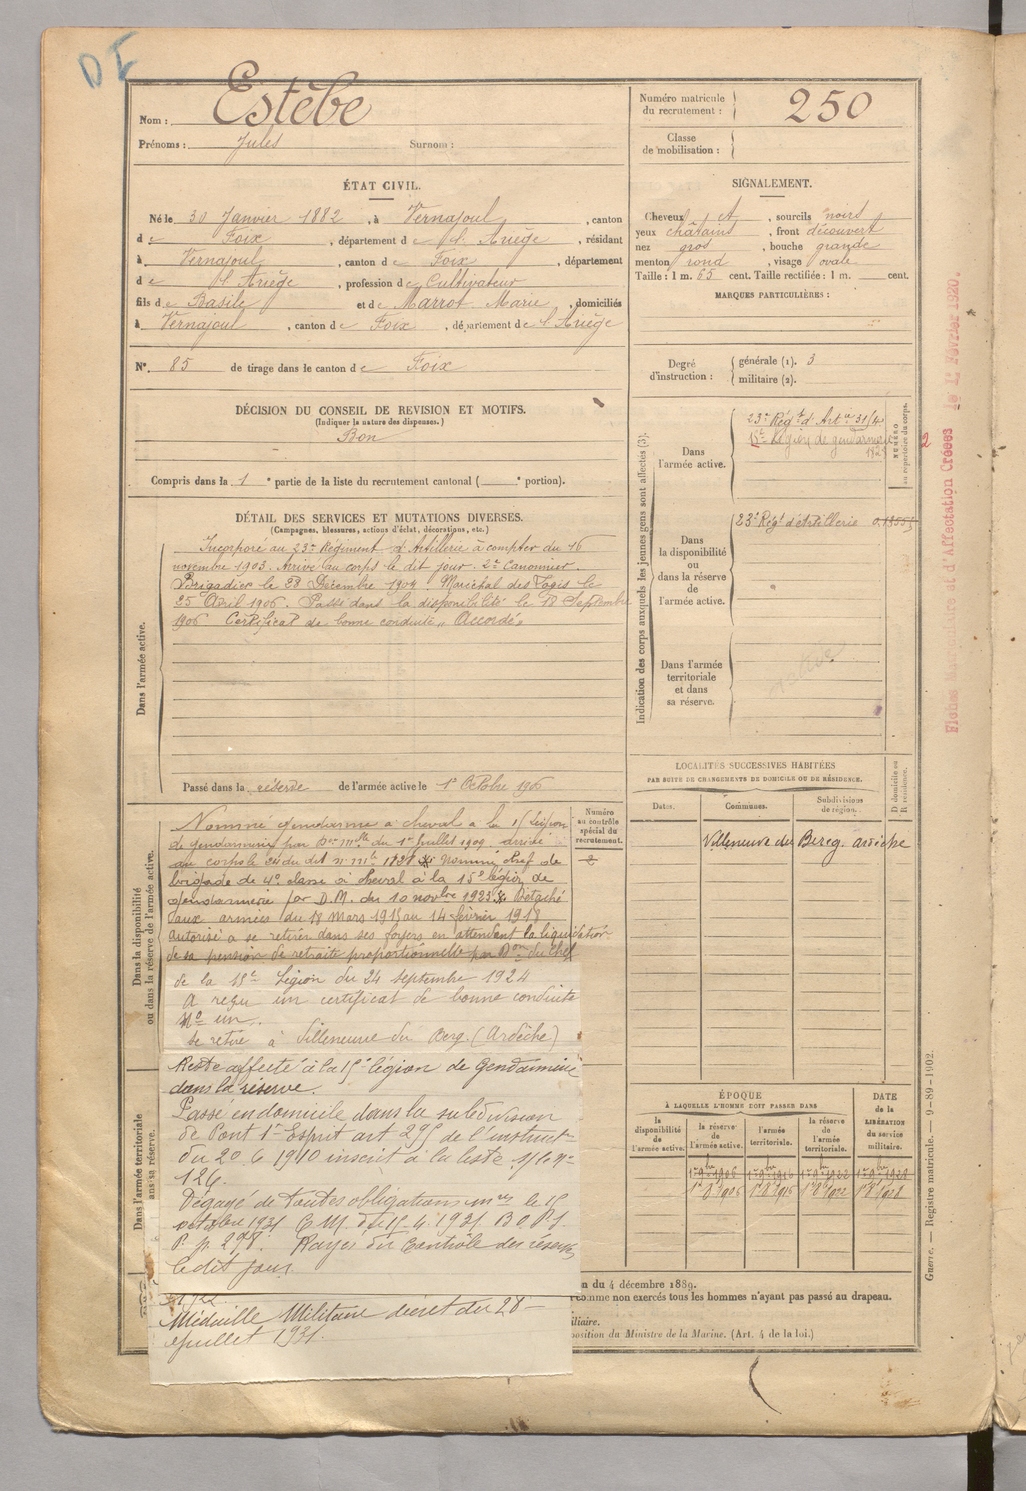 DE
Nom : Estèbe
Prénoms : Jules Surnom :
Numéro matricule du recrutement : 250
Classe de mobilisation :
ÉTAT CIVIL.
Né le 30 Janvier 1882, à Vernajoul, canton
de Foix, département de l'Ariège, résidant
à Vernajoul, canton de Foix, département
de l'Ariège, profession de Cultivateur
fils de Basile et de Marrot Marie, domiciliés
à Vernajoul, canton de Foix, département de l'Ariège
N°. 85 de tirage dans le canton de Foix
SIGNALEMENT.
Cheveux et, sourcils noirs
yeux châtains, front découvert
nez gros, bouche grande
menton rond, visage ovale
Taille : 1 m. 65 cent. Taille rectifiée : 1 m. cent.
MARQUES PARTICULIÈRES :
Degré d'instruction : générale (1). 3
militaire (2).
DÉCISION DU CONSEIL DE REVISION ET MOTIFS.
(Indiquer la nature des dispenses.)
Bon
Compris dans la 1e partie de la liste du recrutement cantonal ( e portion).
DÉTAIL DES SERVICES ET MUTATIONS DIVERSES.
(Campagnes, blessures, actions d'éclat, décorations, etc.)
Dans l'armée active.
Incorporé au 23e Régiment d'Artillerie à compter du 16
novembre 1903. Arrivé au corps le dit jour. 2e Canonnier.
Brigadier le 28 Décembre 1904. Maréchal des Logis le
25 Avril 1906. Passé dans la disponibilité le 18 Septembre
1906 Certificat de bonne conduite „Accordé„
Passé dans la réserve de l'armée active le 1er Octobre 1906
Dans la disponibilité ou dans la réserve de l'armée active.
Nommé gendarme à cheval à la 15 Légion
de gendarmerie par Don mlle du 1er Juillet 1909 arrivé
au corps le dit n° mle 1828 Nommé chef de
brigade de 4e classe à cheval à la 15e légion de
gendarmerie par D.M. du 10 novbre 1923 Détaché
aux armées du 18 Mars 1915 au 14 février 1918
autorisé à se retirer dans ses foyers en attendant la liquidation
de sa pension de retraite proportionnelle par Don du chef
de la 15e Légion du 24 septembre 1924
A reçu un certificat de bonne conduite
N° un.
se retire à Villeneuve du Berg (Ardèche)
Reste affecté à la 15e légion de Gendarmerie
dans la réserve.
Passé en domicile dans la subdivision
de Pont St Esprit art 295 de l'instructon
du 20.6.1910 inscrit à la liste
126.
Dégagé de toutes obligations mres le 15
octobre 1931 C.M. du 15.4.1931 B.O.P.S.
P. p. 298. Rayé du contrôle des réserves
le dit jour
Médaille Militaire décret du 28
juillet 1931.
Dans l'armée territoriale
Numéro au contrôle spécial du recrutement.
Indication des corps auxquels les jeunes gens sont affectés (3).
Dans l'armée active.
23e Régt d'Arte
15e Légion de gendarmerie
NUMÉRO au répertoire du corps.
2
23e Régt d'Artillerie
Dans la disponibilité ou dans la réserve de l'armée active.
Dans l'armée territoriale et dans sa réserve.
LOCALITÉS SUCCESSIVES HABITÉES
PAR SUITE DE CHANGEMENTS DE DOMICILE OU DE RÉSIDENCE.
Dates. Communes. Subdivisions de région. D domicile ou R résidence.
Villeneuve du Berg. ardèche
ÉPOQUE
À LAQUELLE L'HOMME DOIT PASSER DANS
DATE de la LIBÉRATION du service militaire.
la disponibilité de l'armée active.
la réserve de l'armée active.
l'armée territoriale.
la réserve de l'armée territoriale.
n du 4 décembre 1889.
comme non exercés tous les hommes n'ayant pas passé au drapeau.
iliaire.
position du Ministre de la Marine. (Art. 4 de la loi.)
Guerre. — Registre matricule. — 9-89-1902.
d'Affectation Créées le 1er Février 1920.